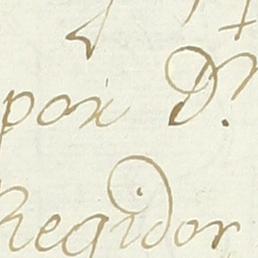 por D.
Regidor